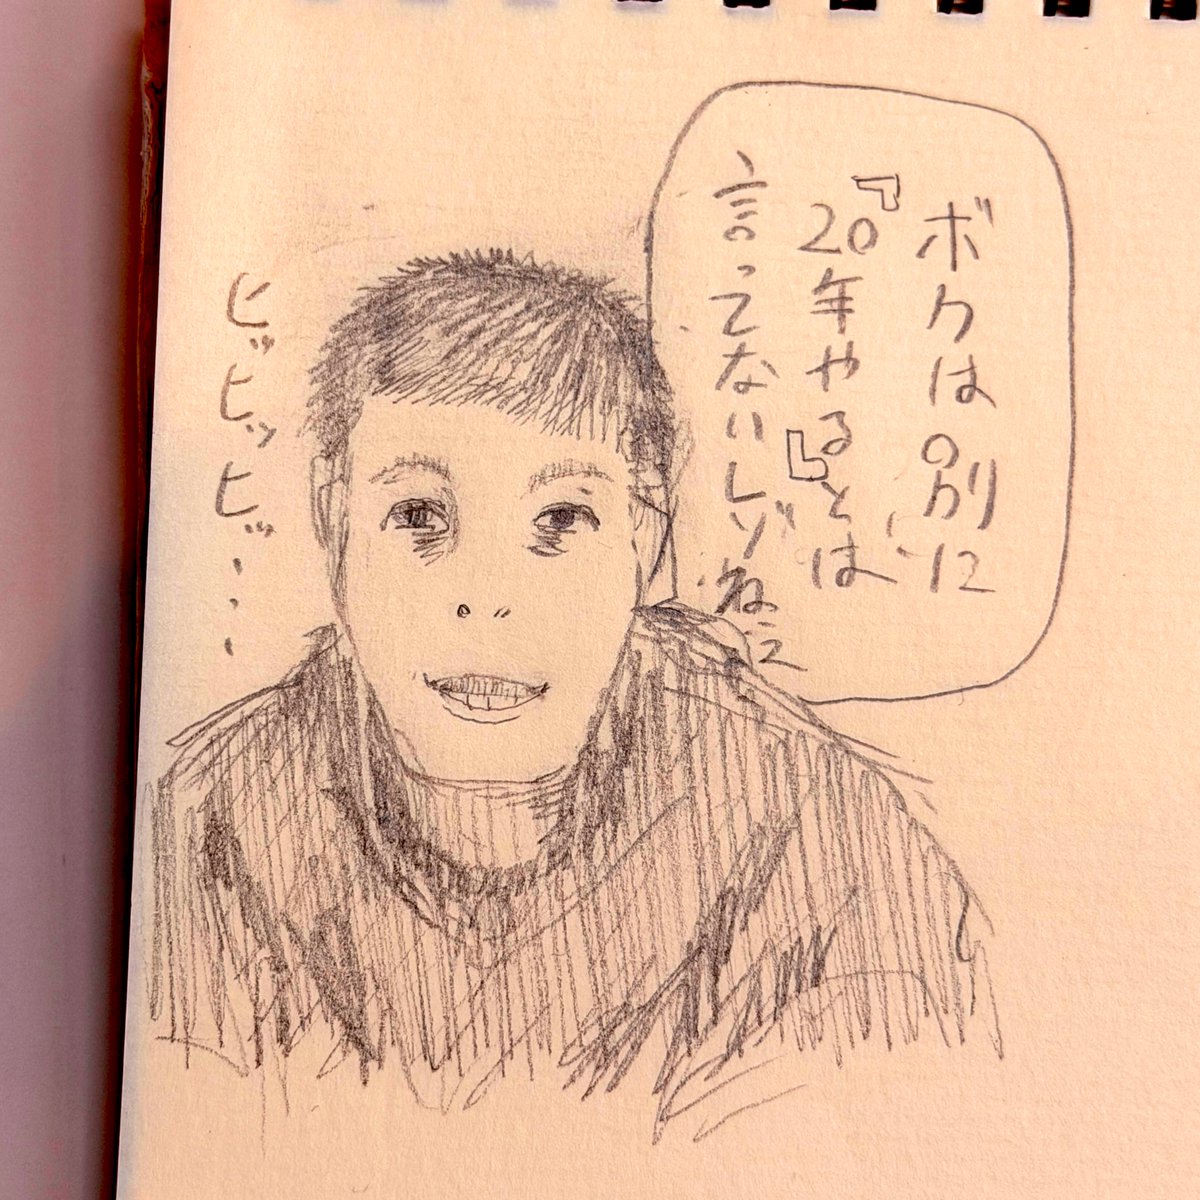 ボクは別に
『20年やる』とは
言ってないしゾねえ
ヒッヒッヒッ・・・